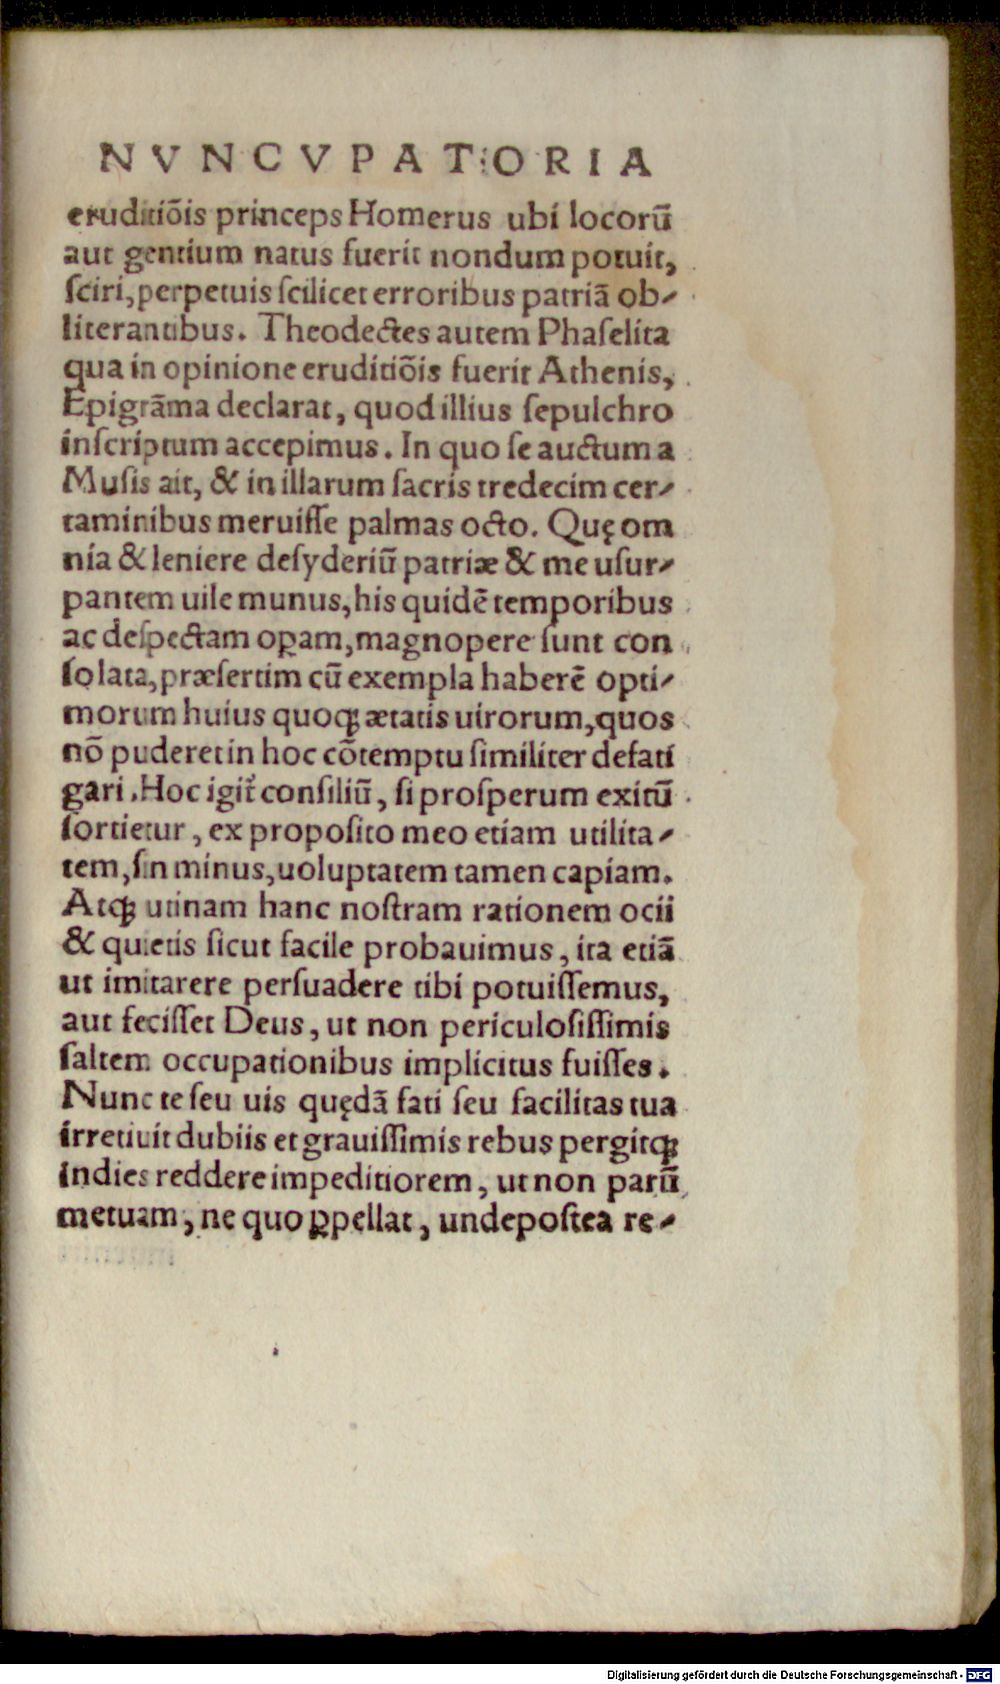 NVNCVPATORIA
eruditiõis princeps Homerus ubi locorũ
aut gentium natus fuerit nondum potuit,
ſciri, perpetuis ſcilicet erroribus patriã ob-
literantibus. Theodectes autem Phaſelita
qua in opinione eruditiõis fuerit Athenis,
Epigrãma declarat, quod illius ſepulchro
inſcriptum accepimus. In quo ſe auctum a
Muſis ait, & in illarum ſacris tredecim cer-
taminibus meruiſſe palmas octo. Quę om
nia & leniere deſyderiũ patriæ & me uſur-
pantem uile munus, his quidẽ temporibus
ac deſpectam oꝑam, magnopere ſunt con
ſolata, præſertim cũ exempla haberẽ opti-
morum huius quoqꝫ ætatis uirorum, quos
nõ puderet in hoc cõtemptu ſimiliter defati
gari. Hoc igit᷑ conſiliũ, ſi proſperum exitũ
ſortietur, ex propoſito meo etiam utilita-
tem, ſin minus, uoluptatem tamen capiam.
Atqꝫ utinam hanc noſtram rationem ocii
& quietis ſicut facile probauimus, ita etiã
ut imitarere perſuadere tibi potuiſſemus,
aut feciſſet Deus, ut non periculoſiſſimis
ſaltem occupationibus implicitus fuiſſes.
Nunc te ſeu uis quędã fati ſeu facilitas tua
irretiuit dubiis et grauiſſimis rebus pergitqꝫ
indies reddere impeditiorem, ut non parũ
metuam, ne quo ꝓpellat, unde poſtea re-
Digitalisierung gefördert durch die Deutsche Forschungsgemeinschaft - DFG